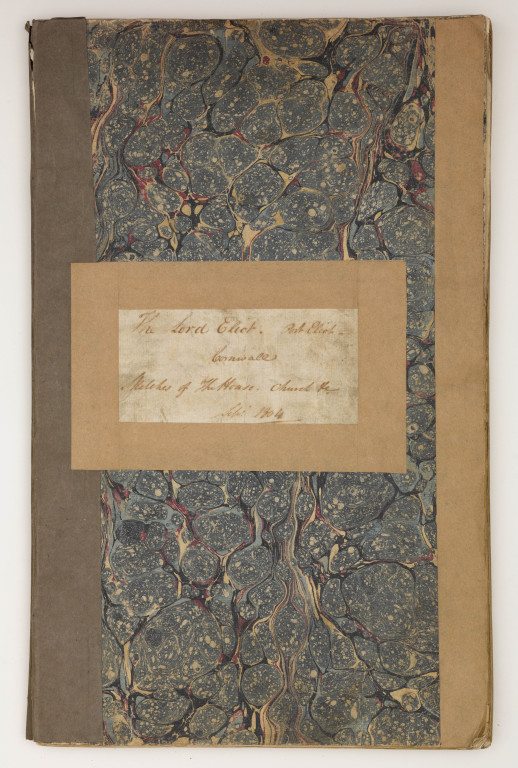 The Lord Eliot. Port Eliot –
Cornwall
Sketches of The House. Church &c
1804